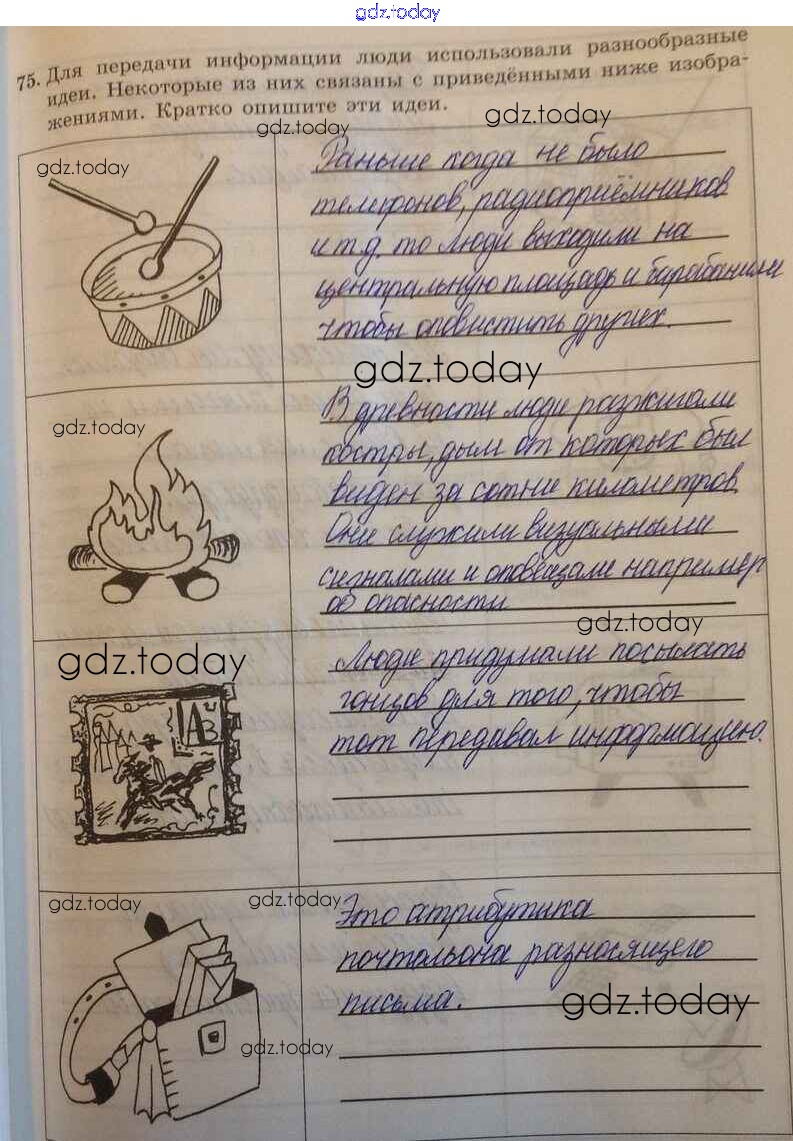 gdz.today
75. Для передачи информации люди использовали разнообразные
идеи. Некоторые из них связаны с приведёнными ниже изобра-
жениями. Кратко опишите эти идеи.
gdz.today
gdz.today
gdz.today
Раньше когда не было
телефонов, радиоприёмников
и т.д. то люди выходили на
центральную площадь и барабанили
чтобы оповистить других.
gdz.today
gdz.today
В древности люди разжигали
костры, дым от которых был
виден за сотни километров
Они служили визуальными
сигналами и оповещали например
об опасности
gdz.today
gdz.today
АЗ
Люди придумали посылать
гонцов для того, чтобы
тот передавал информацию.
gdz.today
gdz.today
Это атрибутика
почтольона разносящего
письма.
gdz.today
gdz.today